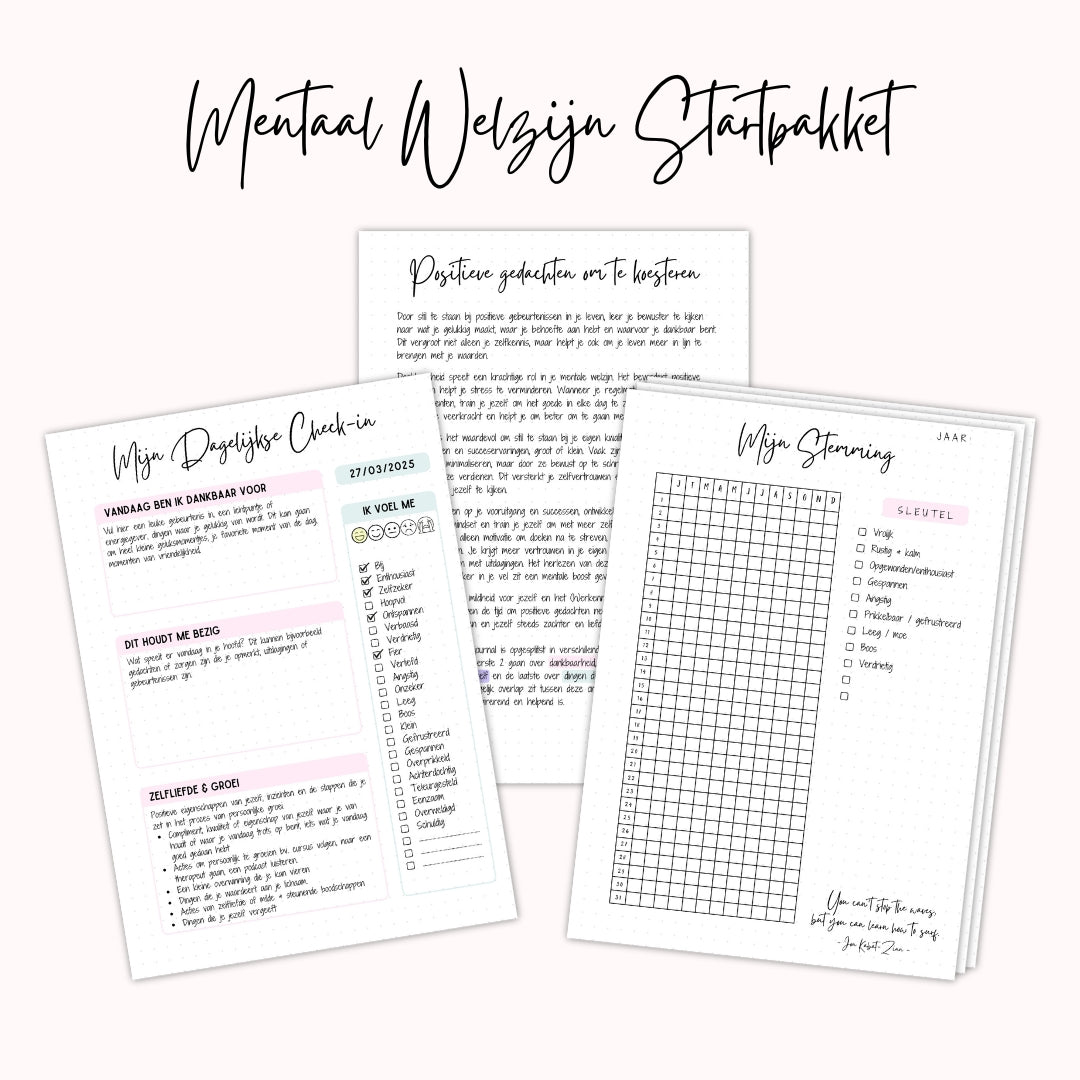 Mentaal Welzijn Startpakket
Positieve gedachten om te koesteren
Door stil te staan bij positieve gebeurtenissen in je leven, leer je bewuster te kijken
naar wat je gelukkig maakt, waar je behoefte aan hebt en waarvoor je dankbaar bent.
Dit vergroot niet alleen je zelfkennis, maar helpt je ook om je leven meer in lijn te
brengen met je waarden.
speelt een krachtige rol in je mentale welzijn. Het bevordert positieve
helpt je stress te verminderen. Wanneer je
train je jezelf om het goede in elke dag te
veerkracht en helpt je om beter om te gaan
het waardevol om stil te staan bij je eigen
en succeservaringen, groot of klein. Vaak
minimaliseren, maar door ze bewust op te
ze verdienen. Dit versterkt je zelfvertrouwen
jezelf te kijken.
op je vooruitgang en successen,
en train je jezelf om met meer
alleen motivatie om doelen na te streven,
Je krijgt meer vertrouwen in je eigen
met uitdagingen. Het herlezen van
in je vel zit een mentale boost
mildheid voor jezelf en het
de tijd om positieve gedachten
en je jezelf steeds zachter en
is opgesplitst in
2 gaan over dankbaarheid,
en de laatste over dingen
overlap zit tussen deze
en helpend is.
Mijn Dagelijkse Check-in
27/03/2025
VANDAAG BEN IK DANKBAAR VOOR
Vul hier een leuke gebeurtenis in, een lichtpuntje of
energiegever, dingen waar je gelukkig van wordt. Dit kan gaan
om heel kleine geluksmomentjes, je favoriete moment van de dag,
momenten van vriendelijkheid.
DIT HOUDT ME BEZIG
Wat speelt er vandaag in je hoofd? Dit kunnen bijvoorbeeld
gedachten of zorgen zijn die je opmerkt, uitdagingen of
gebeurtenissen zijn.
ZELFLIEFDE & GROEI
Positieve eigenschappen van jezelf, inzichten en de stappen die je
zet in het proces van persoonlijke groei.
• Compliment, kwaliteit of eigenschap van jezelf waar je van
houdt of waar je vandaag trots op bent, iets wat je vandaag
goed gedaan hebt
• Acties om persoonlijk te groeien bv. cursus volgen, naar een
therapeut gaan, een podcast luisteren.
• Een kleine overwinning die je kan vieren
• Dingen die je waardeert aan je lichaam
• Acties van zelfliefde of milde & steunende boodschappen
• Dingen die je jezelf vergeeft
IK VOEL ME
Blij
Enthousiast
Zelfzeker
Hoopvol
Ontspannen
Verbaasd
Verdrietig
Fier
Verliefd
Angstig
Onzeker
Leeg
Boos
Klein
Gefrustreerd
Gespannen
Overprikkeld
Achterdochtig
Teleurgesteld
Eenzaam
Overweldigd
Schuldig
Mijn Stemming
JAAR:
J F M A M J J A S O N D
1
2
3
4
5
6
7
8
9
10
11
12
13
14
15
16
17
18
19
20
21
22
23
24
25
26
27
28
29
30
31
SLEUTEL
Vrolijk
Rustig & kalm
Opgewonden/enthousiast
Gespannen
Angstig
Prikkelbaar / gefrustreerd
Leeg / moe
Boos
Verdrietig
You can't stop the waves,
but you can learn how to surf.
-Jon Kabat-Zinn -